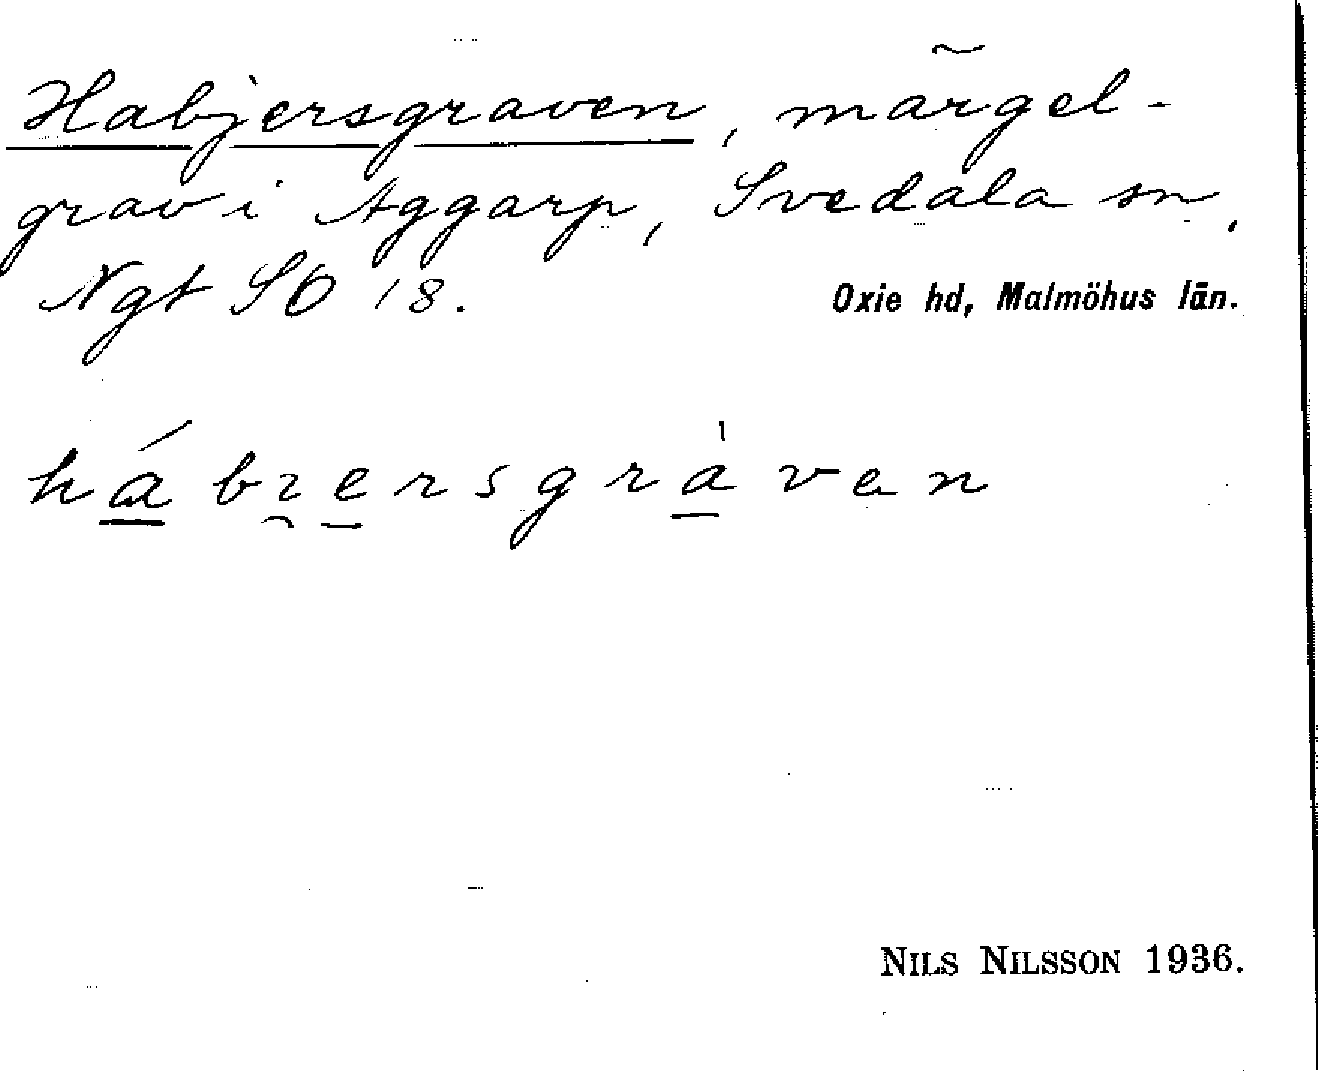 Habjersgraven, märgel-
grav i Aggarp, Svedala sn,
Ngt SO 18.
Oxie hd, Malmöhus län.
hábıersgràven
NILS NILSSON 1936.